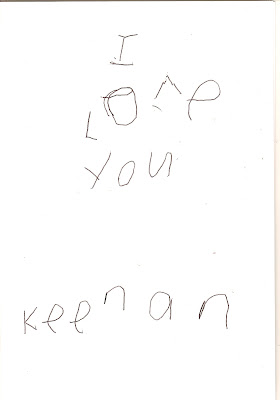 I
Love
You
Keenan